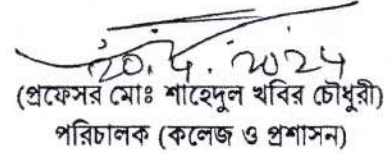 20.5.2024
(প্রফেসর মোঃ শাহেদুল খবির চৌধুরী)
পরিচালক (কলেজ ও প্রশাসন)